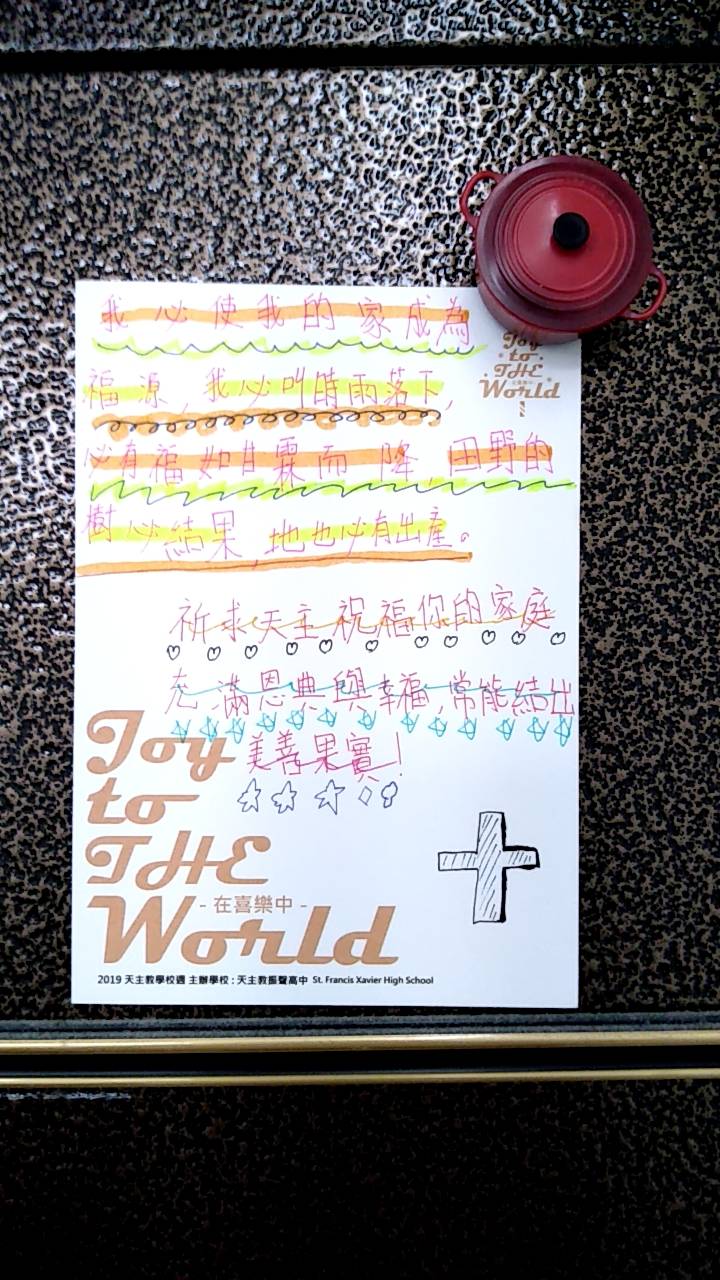 我必使我的家成為
福源,我必叫時雨落下,
必有福如甘霖而降,田野的
樹必結果,地也必有出產。
Joy
to
THE
World
祈求天主祝福你的家庭
充滿恩典與幸福,常能結出
美善果實!
Joy
to
THE
-在喜樂中-
World
2019 天主教學校週 主辦學校:天主教振聲高中 St. Francis Xavier High School